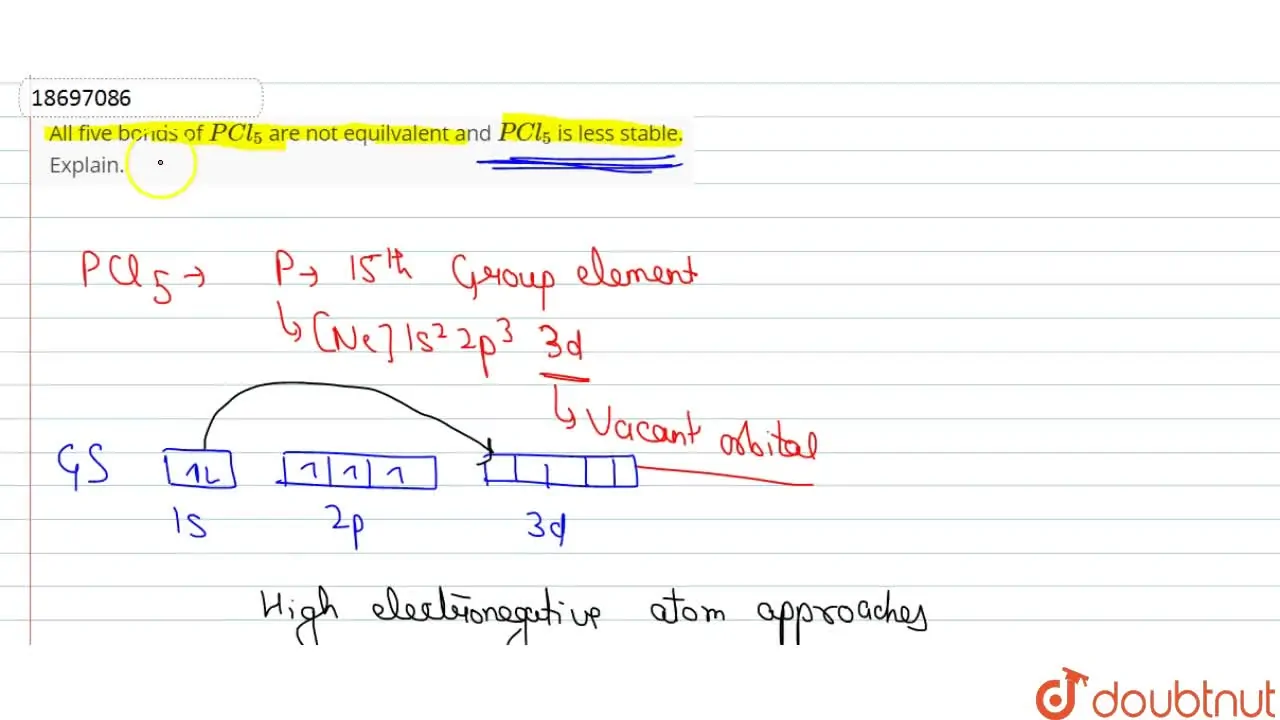 18697086
All five bonds of PCl₅ are not equilvalent and PCl₅ is less stable.
Explain.
PCl₅ → P → 15th Group element
↳ [Ne] 1s² 2p³ 3d
↳ Vacant orbital
GS 1L 1 1 1
1s 2p 3d
High electronegative atom approaches
doubtnut